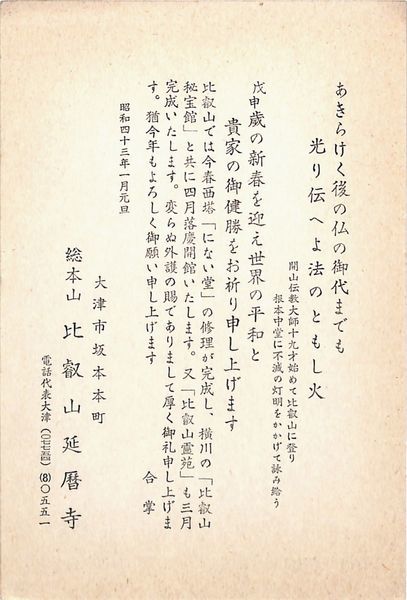 あきらけく後の仏の御代までも
光り伝へよ法のともし火
開山伝教大師十九才始めて比叡山に登り
根本中堂に不滅の灯明をかかげて詠み給う
戊申歳の新春を迎え世界の平和と
貴家の御健勝をお祈り申し上げます
比叡山では今春西塔「にない堂」の修理が完成し、横川の「比叡山
秘宝館」と共に四月落慶開館いたします。又「比叡山霊苑」も三月
完成いたします。変らぬ外護の賜でありまして厚く御礼申し上げま
す。猶今年もよろしく御願い申し上げます
合掌
昭和四十三年一月元旦
大津市坂本本町
総本山 比叡山延暦寺
電話代表大津(〇七七五四)(8)〇五五一